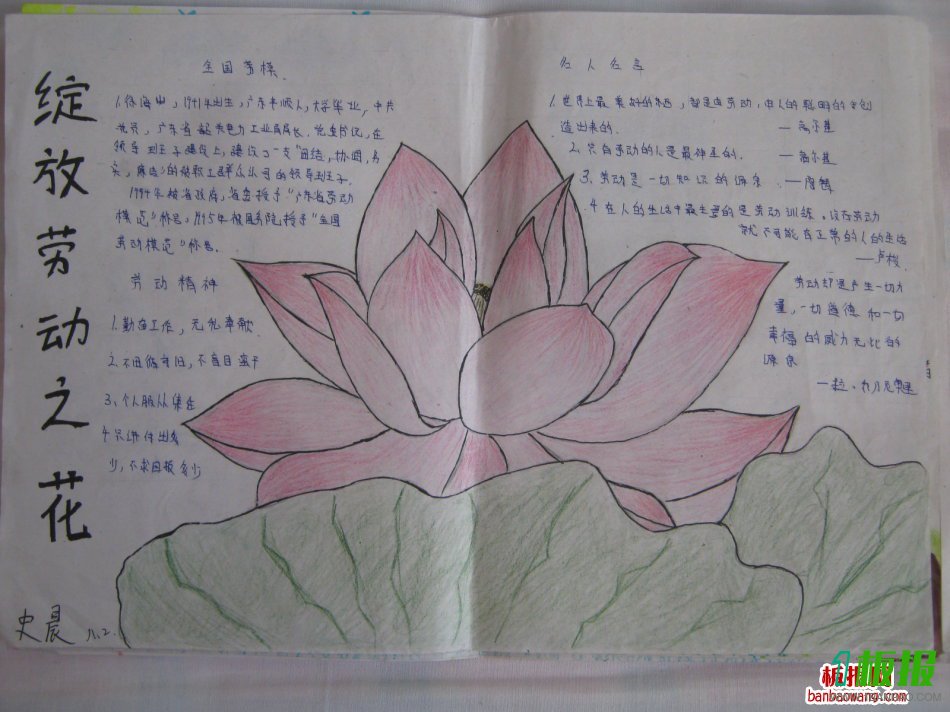 绽放劳动之花
全国劳模
1.徐海中,1941年出生,广东丰顺人,大学毕业,中共
党员,广东省韶关电力工业局局长、党委书记,在
领导班子建设上,建设了一支"团结,协调,务
实,廉洁"的被职工群众认可的领导班子.
1994年被省政府,省委授予"广东省劳动
模范"称号;1995年被国务院授予"全国
劳动模范"称号.
劳动精神
1.勤奋工作,无私奉献
2.不因循守旧,不盲目蛮干
3、个人服从集体
4.只讲付出多
少,不求回报多少
史晨 八.2.
名人名言
1.世界上最美好的东西,都是由劳动,由人的聪明的手创
造出来的. —高尔基
2.只有劳动的人是最神圣的. —高尔基
3、劳动是一切知识的源泉. —陶铸
4.在人的生活中最主要的是劳动训练.没有劳动
就不可能有正常的人的生活
—卢梭.
劳动却是产生一切力
量,一切道德和一切
幸福的威力无比的
源泉
—拉.乔乃尼奥里
板报网
banbaowang.com
板报